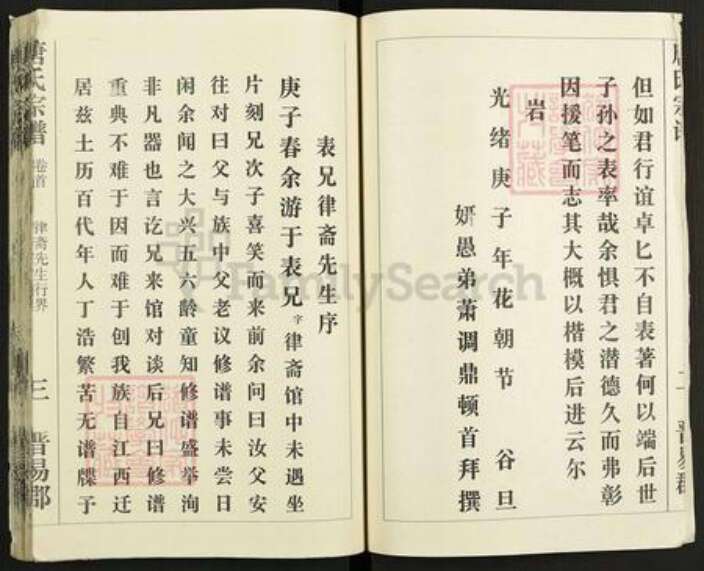 但如君行谊卓匕不自表著何以端后世
子孙之表率哉余惧君之潜德久而弗彰
因援笔而志其大概以楷模后进云尔
岩
光绪庚子年花朝节 谷旦
妍愚弟萧调鼎顿首拜撰
二 晋易郡
表兄律斋先生序
庚子春余游于表兄字律斋馆中未遇坐
片刻兄次子喜笑而来前余问曰汝父安
往对曰父与族中父老议修谱事未尝日
闲余闻之大兴五六龄童知修谱盛举洵
非凡器也言讫兄来馆对谈后兄曰修谱
重典不难于因而难于创我族自江西迁
居兹土历百代年人丁浩繁苦无谱牒予
唐氏宗谱 卷首 律斋先生行界 三 晋易郡
FamilySearch